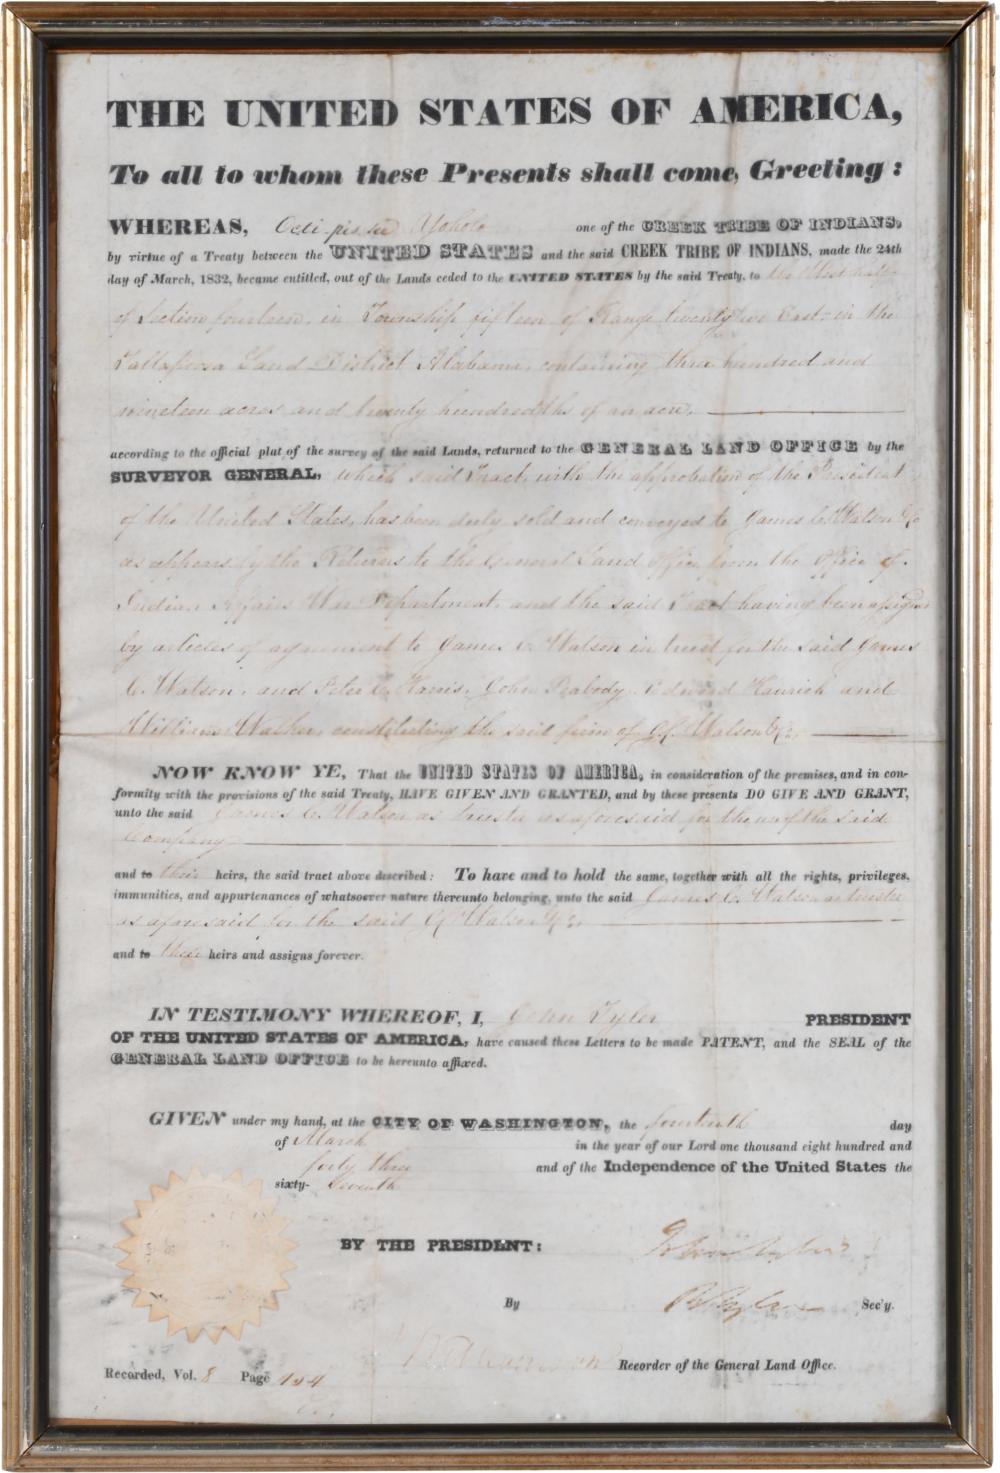 THE UNITED STATES OF AMERICA,
To all to whom these Presents shall come, Greeting:
WHEREAS, Yoholo one of the CREEK TRIBE OF INDIANS,
by virtue of a Treaty between the UNITED STATES and the said CREEK TRIBE OF INDIANS, made the 24th
day of March, 1832, became entitled, out of the Lands ceded to the UNITED STATES by the said Treaty, to the West half
of Section fourteen, in Township fifteen of Range twenty two East in the
Tallapoosa Land District Alabama, containing three hundred and
nineteen acres and twenty hundredths of an acre,
according to the official plat of the survey of the said Lands, returned to the GENERAL LAND OFFICE by the
SURVEYOR GENERAL, which said Tract, with the approbation of the President
of the United States, has been duly sold and conveyed to James C. Watson & Co
as appears by the Returns to the General Land Office from the Office of
Indian Affairs War Department, and the said Tract having been assigned
by articles of agreement to James C. Watson in trust for the said James
C. Watson, and Peter C. Harris, John Peabody, Edward Hanrick and
William Walker, constituting the said firm of J.C. Watson & Co.
NOW KNOW YE, That the UNITED STATES OF AMERICA, in consideration of the premises, and in con-
formity with the provisions of the said Treaty, HAVE GIVEN AND GRANTED, and by these presents DO GIVE AND GRANT,
unto the said James C. Watson as trustee as aforesaid for the use of the said
Company
and to their heirs, the said tract above described: To have and to hold the same, together with all the rights, privileges,
immunities, and appurtenances of whatsoever nature thereunto belonging, unto the said James C. Watson as trustee
as aforesaid for the said J.C. Watson & Co.
and to their heirs and assigns forever.
IN TESTIMONY WHEREOF, I, John Tyler PRESIDENT
OF THE UNITED STATES OF AMERICA, have caused these Letters to be made PATENT, and the SEAL of the
GENERAL LAND OFFICE to be hereunto affixed.
GIVEN under my hand, at the CITY OF WASHINGTON, the fourteenth day
of March in the year of our Lord one thousand eight hundred and
forty three and of the Independence of the United States the
sixty-seventh
BY THE PRESIDENT: John Tyler
By Sec'y.
Recorder of the General Land Office.
Recorded, Vol. 8 Page